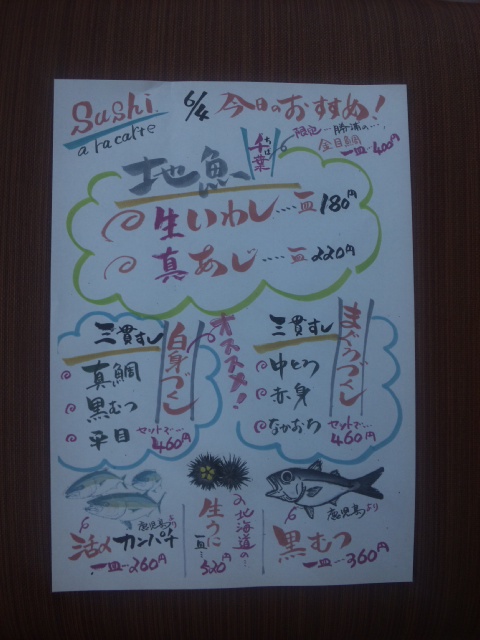 Sushi
a racarte
6/4 今日のおすすめ!
地魚
千葉
ちば
限定 勝浦の…
金目鯛
一皿…400円
生いわし‥‥一皿180円
真あじ‥‥一皿220円
オススメ!
三貫すし
白身づくし
真鯛
黒むつ
平目
セットで…
460円
三貫すし
まぐろづくし
中とろ
赤身
なかおち
セットで…
460円
鹿児島より
活〆カンパチ
一皿…260円
北海道の…
生うに
一皿…
520円
鹿児島より
黒むつ
一皿…360円